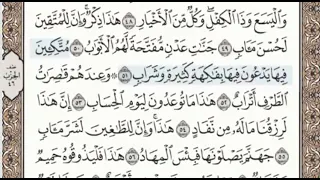 وَالْيَسَعَ وَذَا الْكِفْلِ ۖ وَكُلٌّ مِّنَ الْأَخْيَارِ ٤٨ هَٰذَا ذِكْرٌ ۚ وَإِنَّ لِلْمُتَّقِينَ
لَحُسْنَ مَـَٔابٍ ٤٩ جَنَّٰتِ عَدْنٍ مُّفَتَّحَةً لَّهُمُ الْأَبْوَٰبُ ٥٠ مُتَّكِـِٔينَ
فِيهَا يَدْعُونَ فِيهَا بِفَٰكِهَةٍ كَثِيرَةٍ وَشَرَابٍ ٥١ ۞ وَعِندَهُمْ قَٰصِرَٰتُ
الطَّرْفِ أَتْرَابٌ ٥٢ هَٰذَا مَا تُوعَدُونَ لِيَوْمِ الْحِسَابِ ٥٣ إِنَّ هَٰذَا
لَرِزْقُنَا مَا لَهُۥ مِن نَّفَادٍ ٥٤ هَٰذَا ۚ وَإِنَّ لِلطَّٰغِينَ لَشَرَّ مَـَٔابٍ
٥٥ جَهَنَّمَ يَصْلَوْنَهَا فَبِئْسَ الْمِهَادُ ٥٦ هَٰذَا فَلْيَذُوقُوهُ حَمِيمٌ